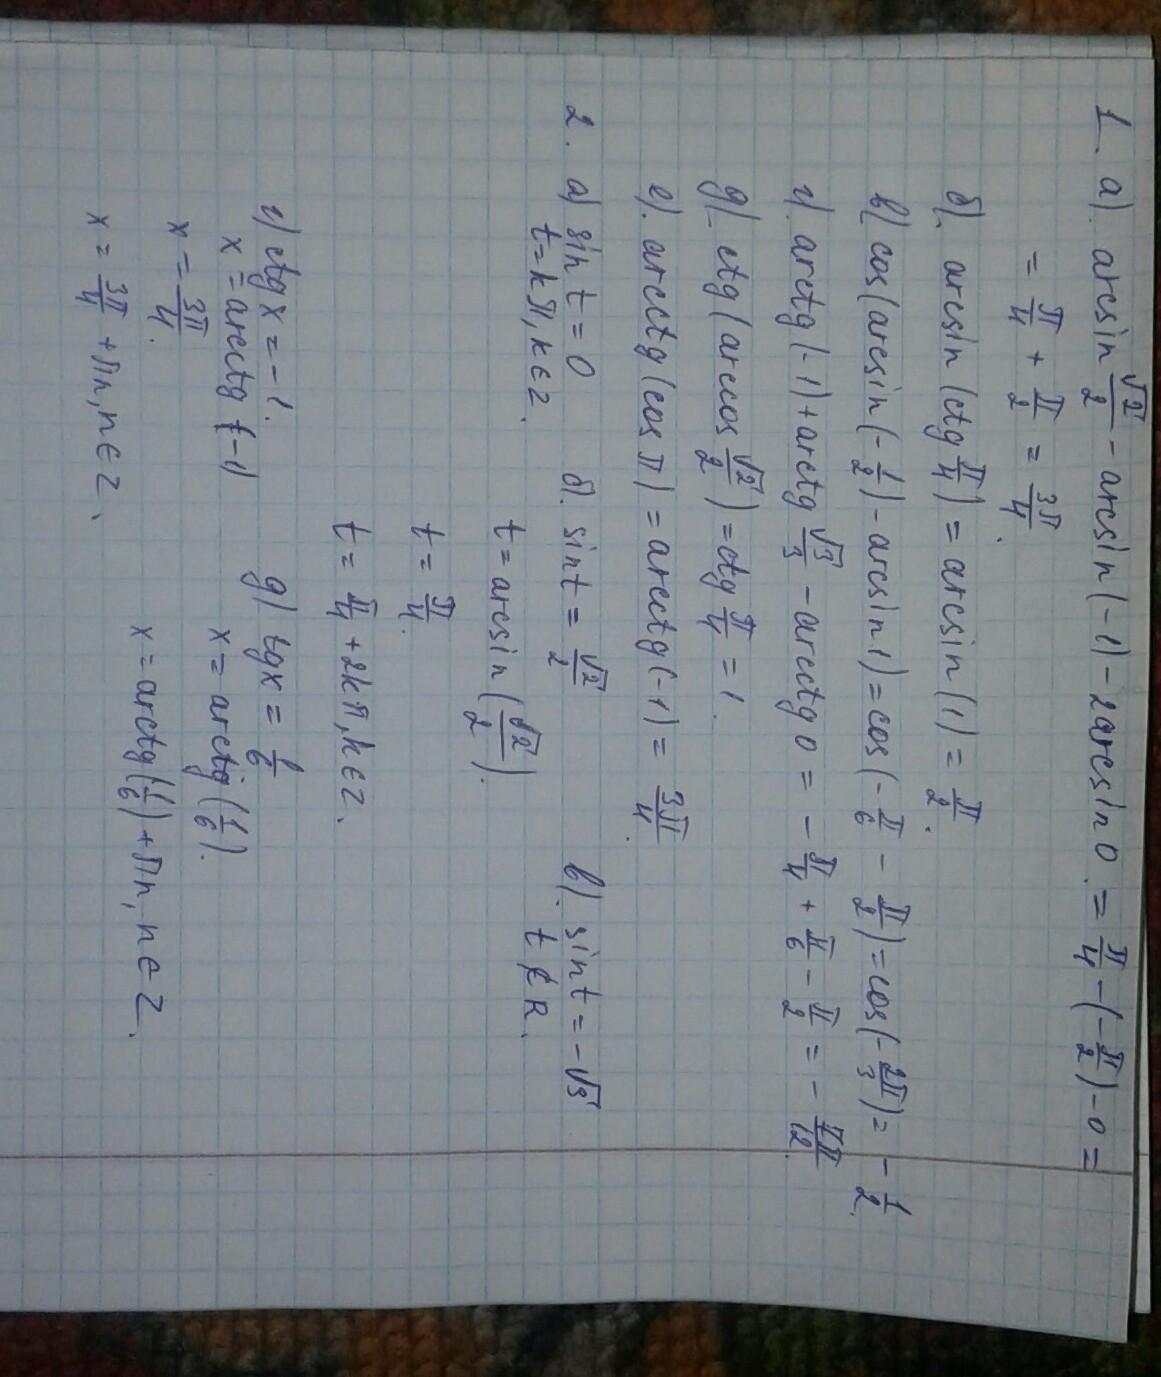 1. а). arcsin √2/2 - arcsin (-1) - 2arcsin 0 = π/4 - (-π/2) - 0 =
= π/4 + π/2 = 3π/4.
б). arcsin (ctg π/4) = arcsin (1) = π/2.
в) cos(arcsin(-1/2) - arcsin 1) = cos(-π/6 - π/2) = cos(-2π/3) = -1/2.
г). arctg (-1) + arctg √3/3 - arcctg 0 = -π/4 + π/6 - π/2 = -7π/12.
д). ctg (arccos √2/2) = ctg π/4 = 1.
е). arcctg (cos π) = arcctg (-1) = 3π/4.
2. а) sin t = 0
t = kπ, k∈Z.
б). sin t = √2/2
t = arcsin (√2/2).
t = π/4.
t = π/4 + 2kπ, k∈Z.
в). sin t = -√3
t ∉ R.
г) ctg x = -1.
x = arcctg (-1)
x = 3π/4.
x = 3π/4 + πn, n∈Z.
д) tg x = 1/6
x = arctg (1/6).
x = arctg(1/6) + πn, n∈Z.